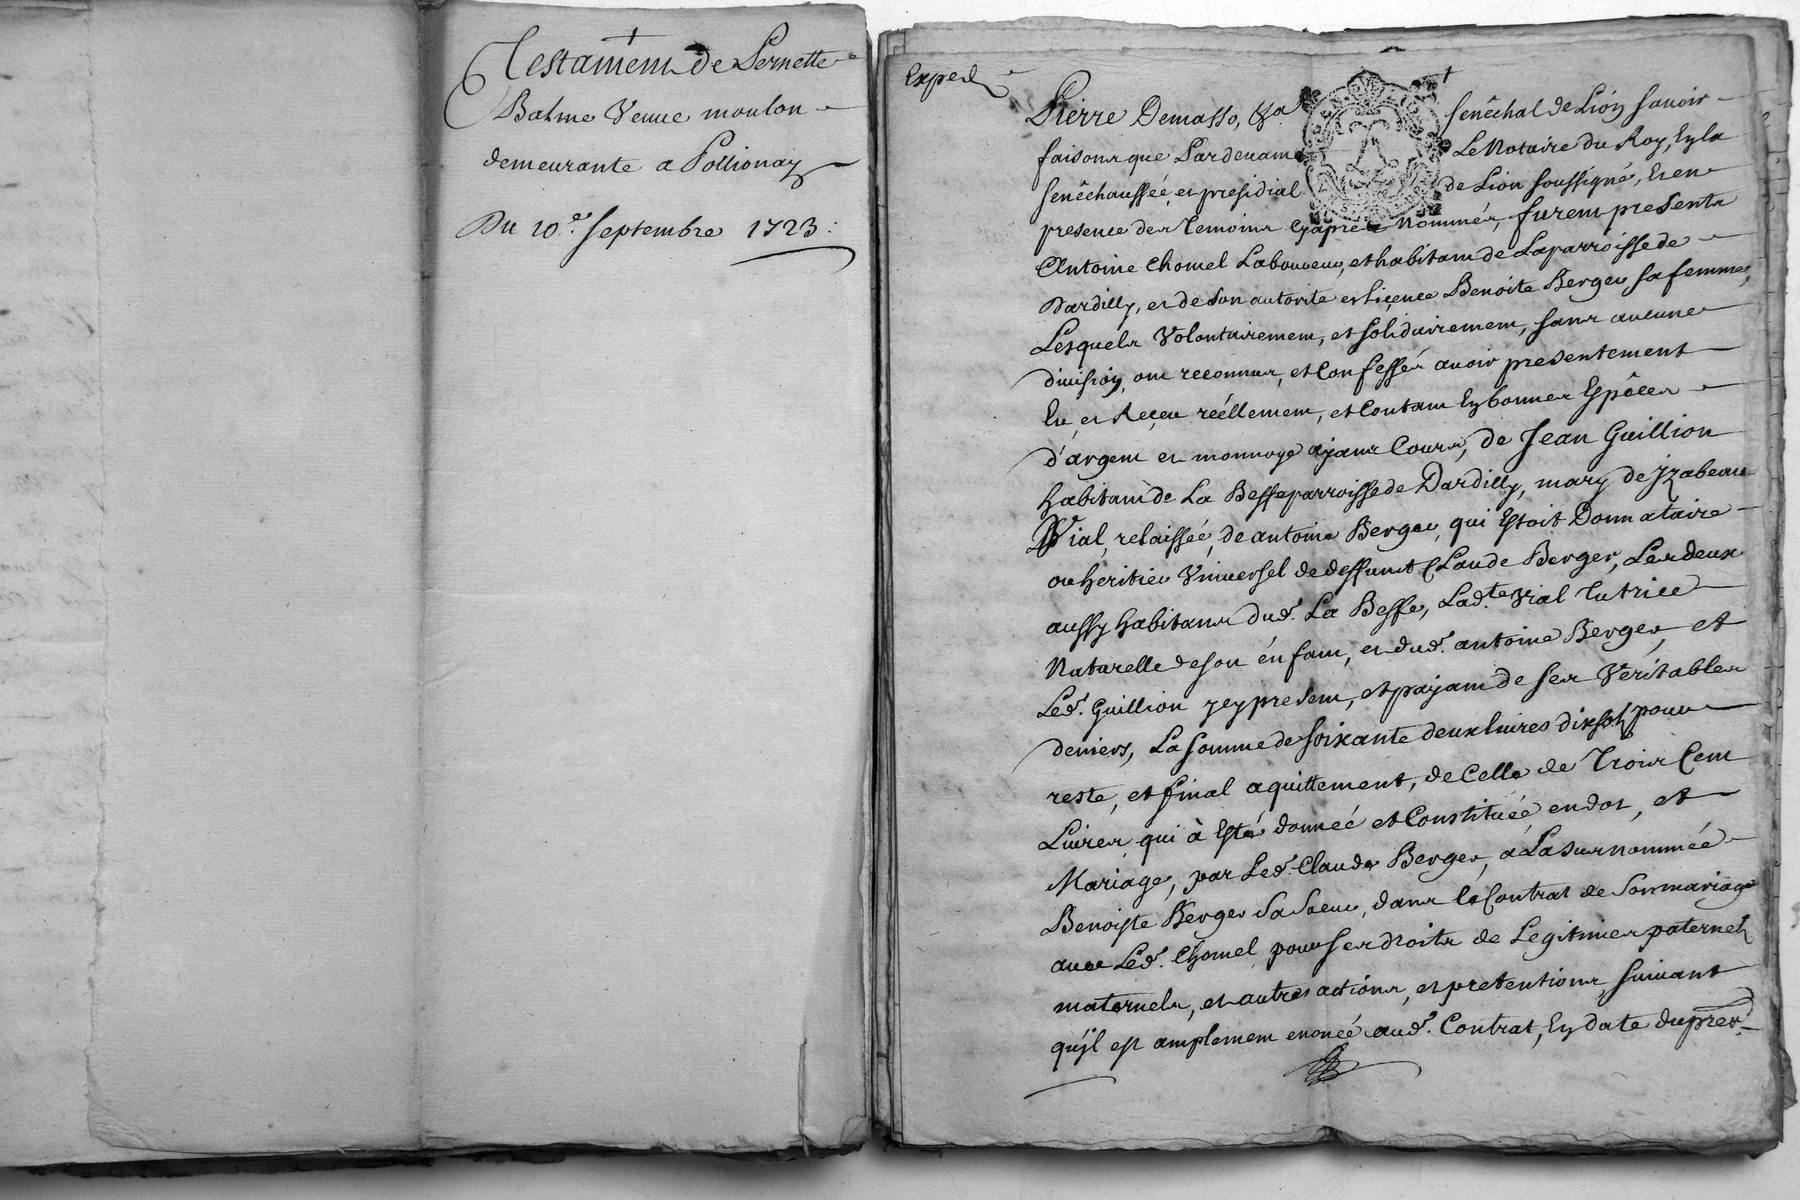 Testament de Pernette
Balme Veuve moulon
demeurante a Pollionay
Du 10.e septembre 1723.
Exped
Pierre Demasso, &a. senêchal de Lion savoir
faisons que Pardevant Le Notaire du Roy, En la
senêchaussée, et presidial de Lion soussigné, Et en
presence des Temoins Cyaprés Nommés, furent presents
Antoine Chomel Laboureur, et habitant de La parroisse de
Dardilly, et de Son autorité et liçence Benoite Berger sa femme,
Lesquels Volontairement, et solidairement, sans aucune
division, ont reconnus, et Confessés avoir presentement
Eu, et Reçeu réellement, et Contant En bonnes Espêces
d'argent et monnoye ayant Cours, de Jean Guillion
habitant de La Besse parroisse de Dardilly, mary de jzabeau
Vial, relaissée, de antoine Berger, qui Estoit Donnataire
ou heritier Universel de deffunt Claude Berger, Les deux
aussy habitans dud. La Besse, Lad.te Vial Tutrice
Naturelle de son énfant, et dud. antoine Berger, et
Led. Guillion jcy present, et payant de ses Véritables
deniers, La somme de soixante deux livres dix sols pour
reste, et final aquittement, de Celle de Trois Cent
Livres, qui à Esté donneé et Constituéé, en dot, et
Mariage, par Led. Claude Berger, à La surnomméé
Benoiste Berger sa soeur, dans le Contrat de Son mariage
avec Led. Chomel, pour ses droits de Legitimes paternels
maternels, et autres actions, et pretentions, suivant
qu'jl est amplement enoncé aud. Contrat, En date du pr̃er.